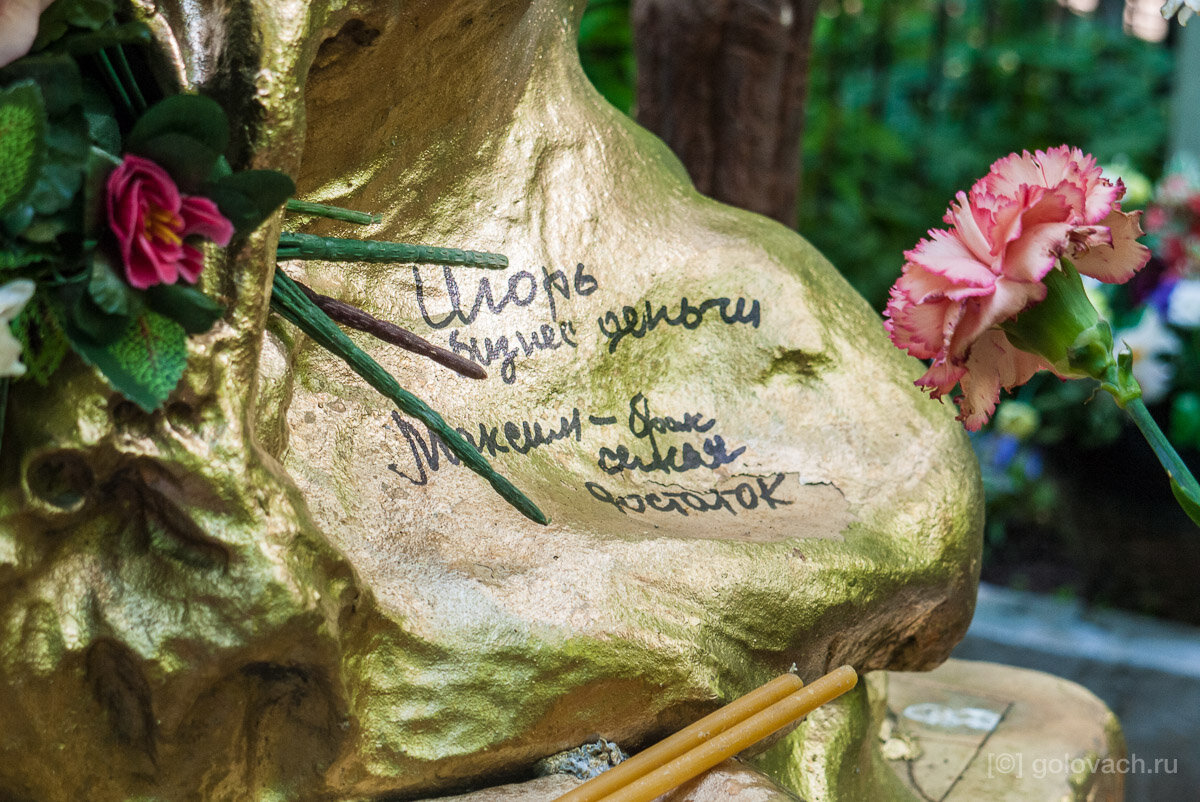 Игорь
бизнес деньги
Максим - брак
семья
достаток
[©] golovach.ru